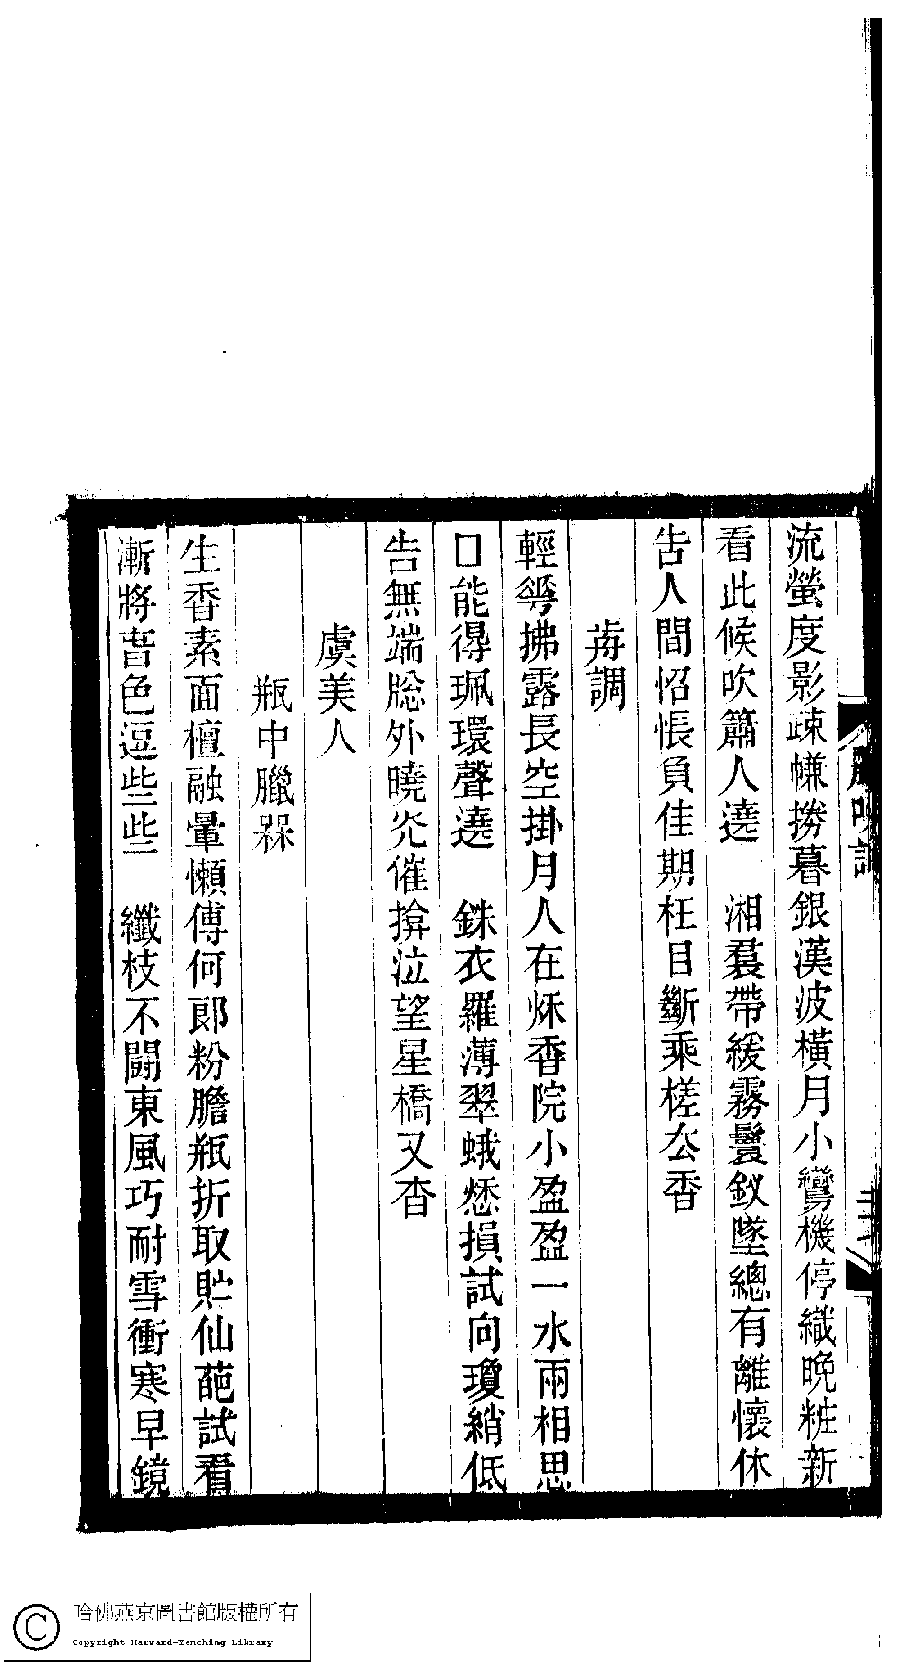 流螢度影疎㡘撈暮銀漢波橫月小鸞機停織晚粧新
看此候吹簫人遶　湘裠帶緩霧鬟釵墜總有離懷休
告人間怊悵負佳期枉目斷乘槎厺香
　　歬調
輕雾拂露長空掛月人在秌香院小盈盈一水兩相思
□能得珮環聲遶　銖衣羅薄翠蛾愁損試向瓊綃低
告無端牕外曉灮催揜泣望星橋又杳
　　虞美人
　　　瓶中臘槑
生香素面檀融暈懶傅何郎粉膽瓶折取貯仙葩試看
漸將旾色逗些些　纖枝不鬪東風巧耐雪衝寒早鏡
哈佛燕京圖書館版權所有
Copyright Harvard-Yenching Library